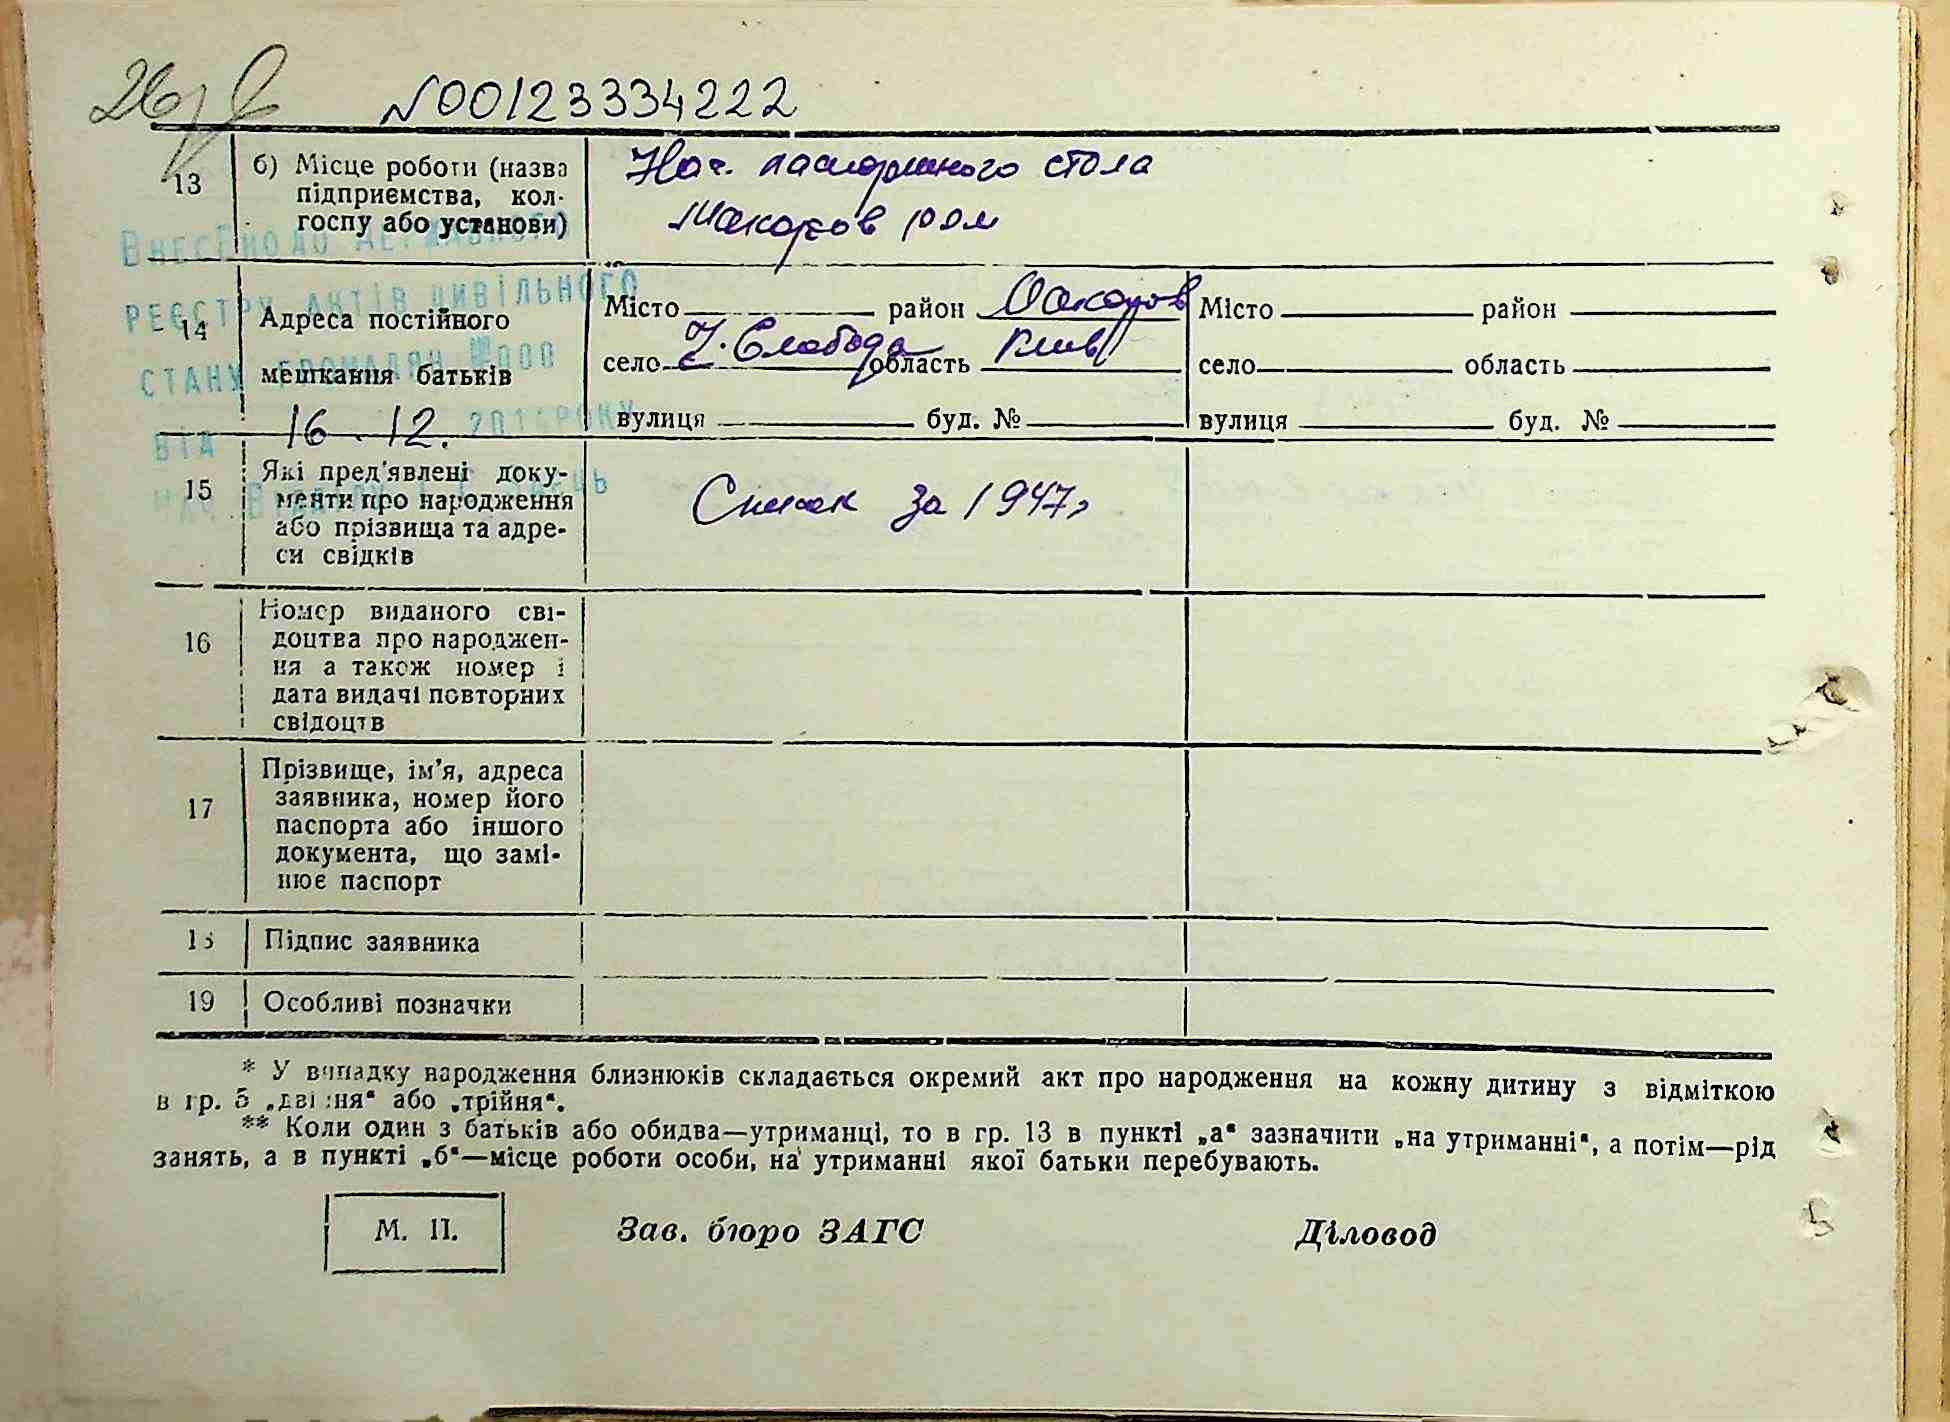 26
№00123334222
13
б) Місце роботи (назва
підприємства, кол-
госпу або установи)
Нач. паспортного стола
Макаров РОМ
Внесено до Державного
реєстру актів цивільного
стану громадян №000
від 16.12. 2014 року
14
Адреса постійного
мешкання батьків
Місто район Макаров
село Н. Слобода область Київ
вулиця буд. №
Місто район
село область
вулиця буд. №
15
Які пред'явлені доку-
менти про народження
або прізвища та адре-
си свідків
Список за 1947 г
16
Номер виданого сві-
доцтва про народжен-
ня а також номер і
дата видачі повторних
свідоцтв
17
Прізвище, ім'я, адреса
заявника, номер його
паспорта або іншого
документа, що замі-
нює паспорт
18
Підпис заявника
19
Особливі позначки
* У випадку народження близнюків складається окремий акт про народження на кожну дитину з відміткою
в гр. 5 „двійня" або „трійня".
** Коли один з батьків або обидва—утриманці, то в гр. 13 в пункті „а" зазначити „на утриманні", а потім—рід
занять, а в пункті „б"—місце роботи особи, на утриманні якої батьки перебувають.
М. П.
Зав. бюро ЗАГС
Діловод